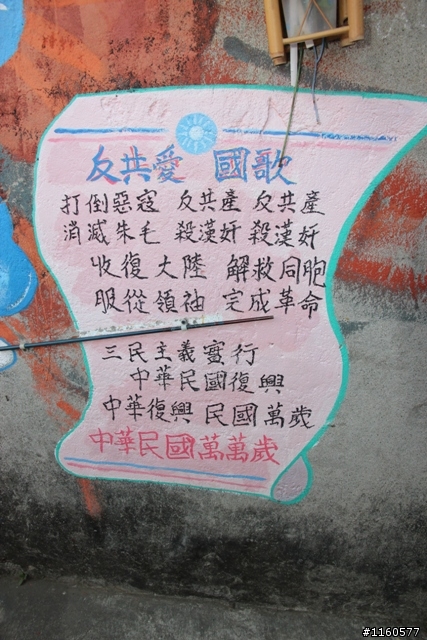 反共愛 國歌
打倒惡寇 反共產 反共產
消滅朱毛 殺漢奸 殺漢奸
收復大陸 解救同胞
服從領袖 完成革命
三民主義實行
中華民國復興
中華復興 民國萬歲
中華民國萬萬歲
#1160577